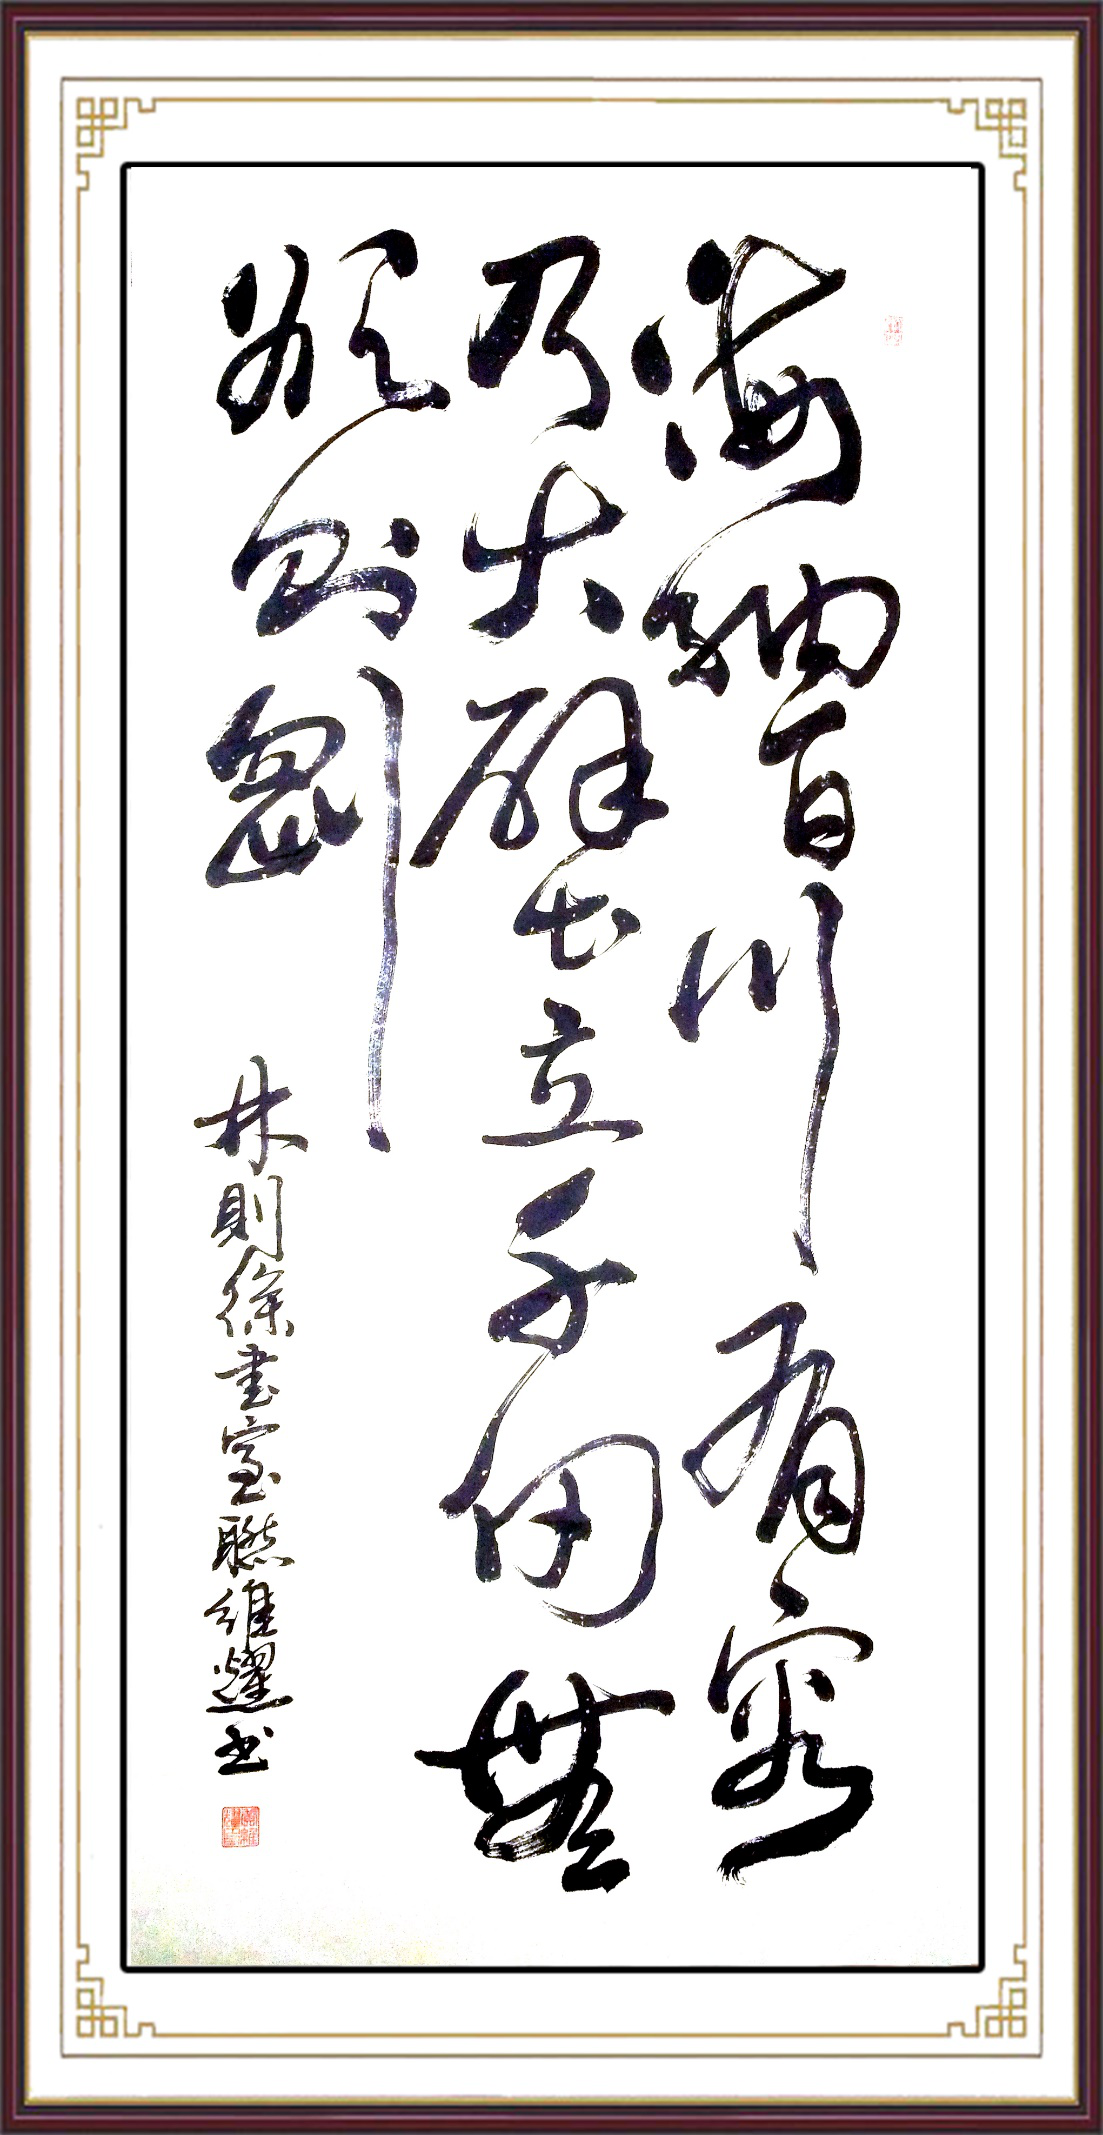 海納百川有容
乃大壁立千仞無
欲則剛
林則徐書室聯維耀书